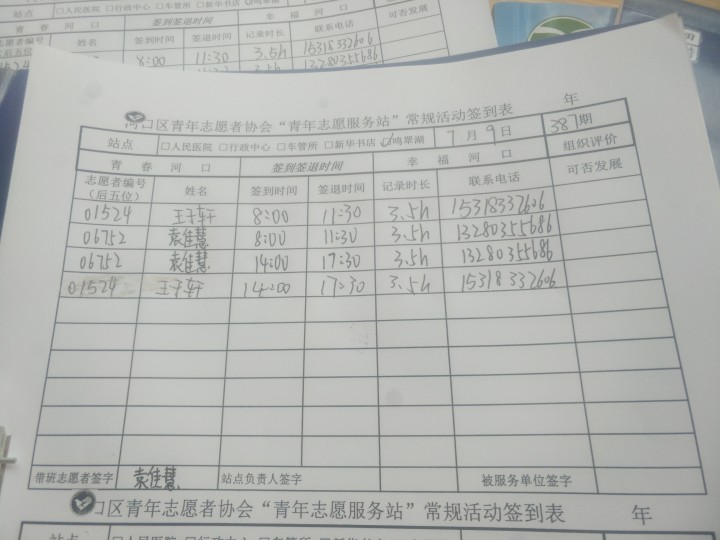 □人民医院 □行政中心 □车管所 □新华书店
姓名 签到时间 签退时间 记录时长 联系电话 可否发展
8:00 11:30 3.5h 15318332606
13280355686
口区青年志愿者协会“青年志愿服务站”常规活动签到表 年
站点 □人民医院 □行政中心 □车管所 □新华书店 ☑鸣翠湖 7月9日 387期
青春河口 签到签退时间 幸福河口 组织评价
志愿者编号（后五位） 姓名 签到时间 签退时间 记录时长 联系电话 可否发展
01524 王子轩 8:00 11:30 3.5h 15318332606
06752 袁佳慧 8:00 11:30 3.5h 13280355686
06752 袁佳慧 14:00 17:30 3.5h 13280355686
01524 王子轩 14:00 17:30 3.5h 15318332606
带班志愿者签字 袁佳慧 站点负责人签字 被服务单位签字
口区青年志愿者协会“青年志愿服务站”常规活动签到表 年